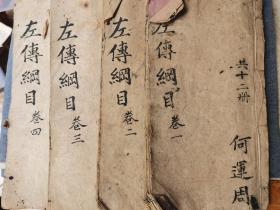 共十二册
何運周
左傳綱目 卷一
左傳綱目 卷二
左傳綱目 卷三
左傳綱目 卷四